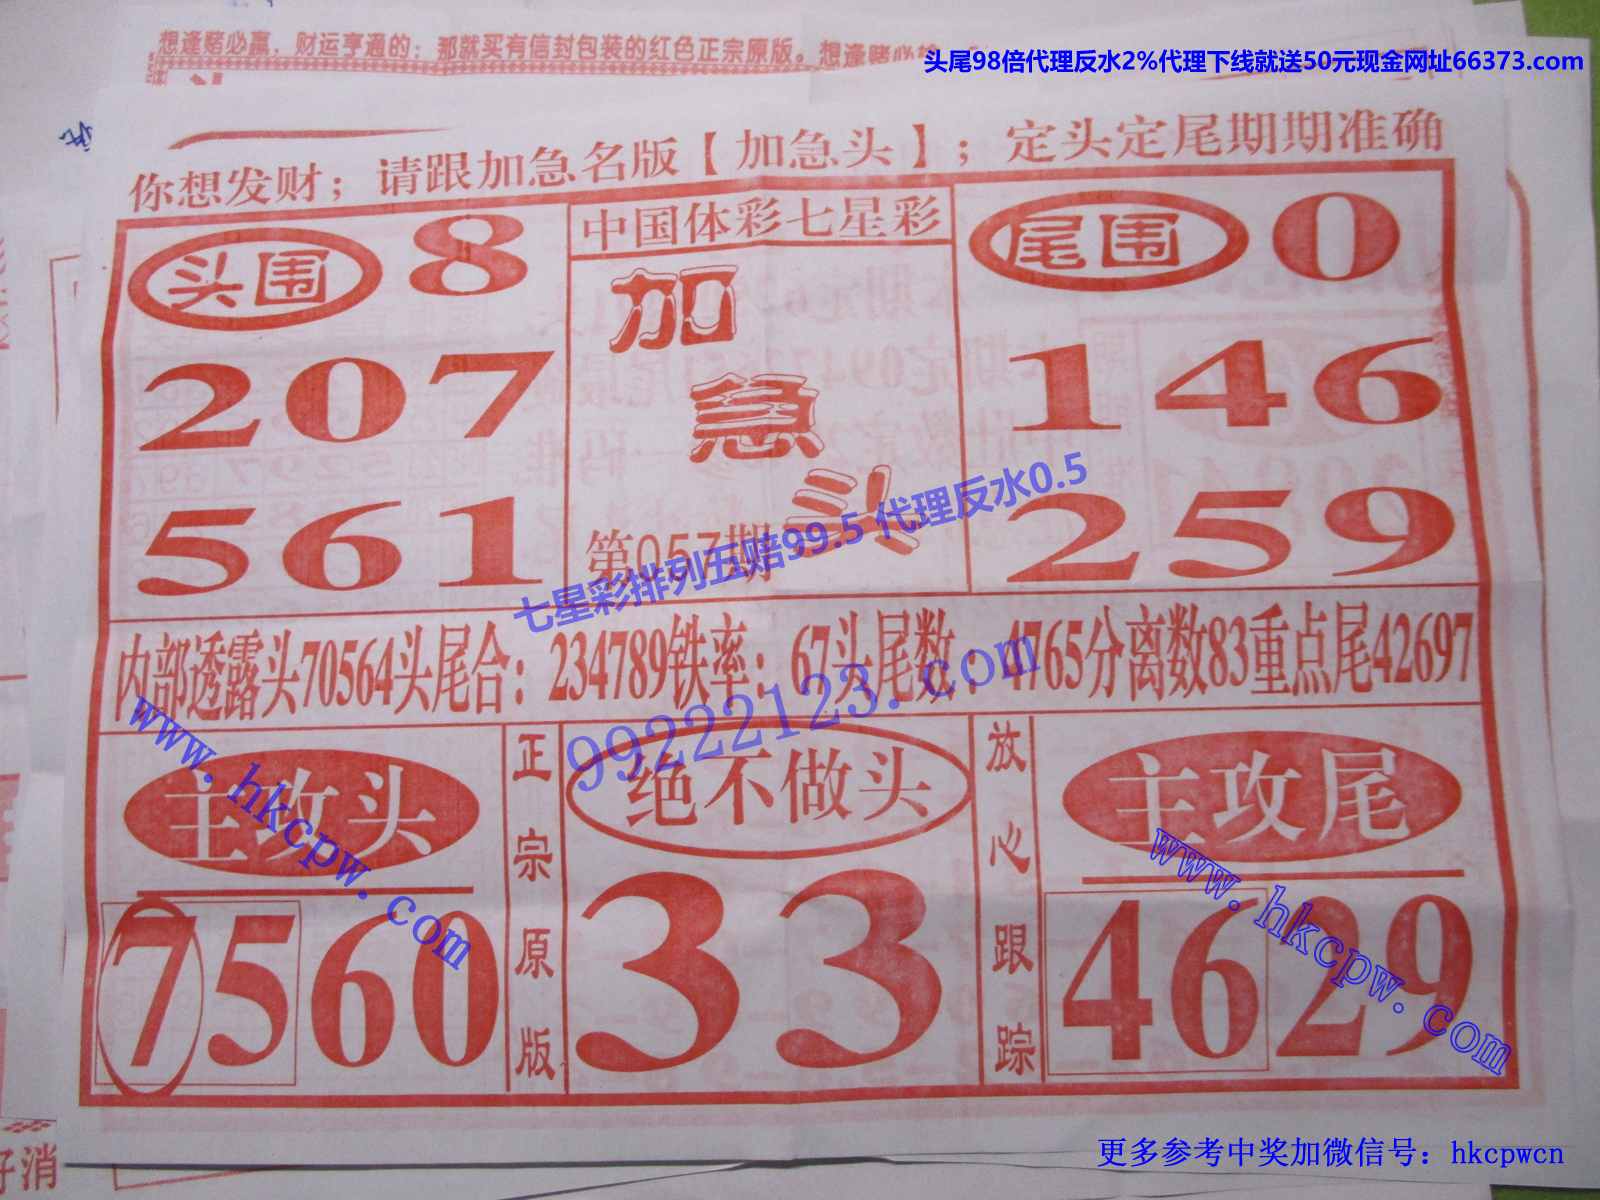 想逢赌必赢，财运亨通的；那就买有信封包装的红色正宗原版。想逢赌必
头尾98倍代理反水2%代理下线就送50元现金网址66373.com
你想发财；请跟加急名版【加急头】；定头定尾期期准确
头围 8
207
561
中国体彩七星彩
加
急
头
第057期
尾围 0
146
259
七星彩排列五赔99.5 代理反水0.5
内部透露头70564头尾合：234789铁率：67头尾数：4765分离数83重点尾42697
99222123.com
www.hkcpw.com
主攻头
7560
正宗原版
绝不做头
33
放心跟踪
主攻尾
4629
www.hkcpw.com
好消
更多参考中奖加微信号：hkcpwcn